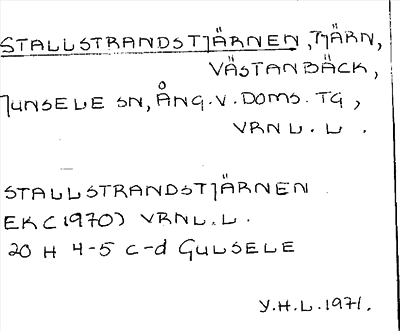 STALLSTRANDSTJÄRNEN, TJÄRN,
VÄSTANBÄCK,
JUNSELE SN, ÅNG.V.DOMS.TG,
VRNL.L.
STALLSTRANDSTJÄRNEN
EK(1970) VRNL.L.
20 H 4-5 c-d GULSELE
Y.H.L.1971.